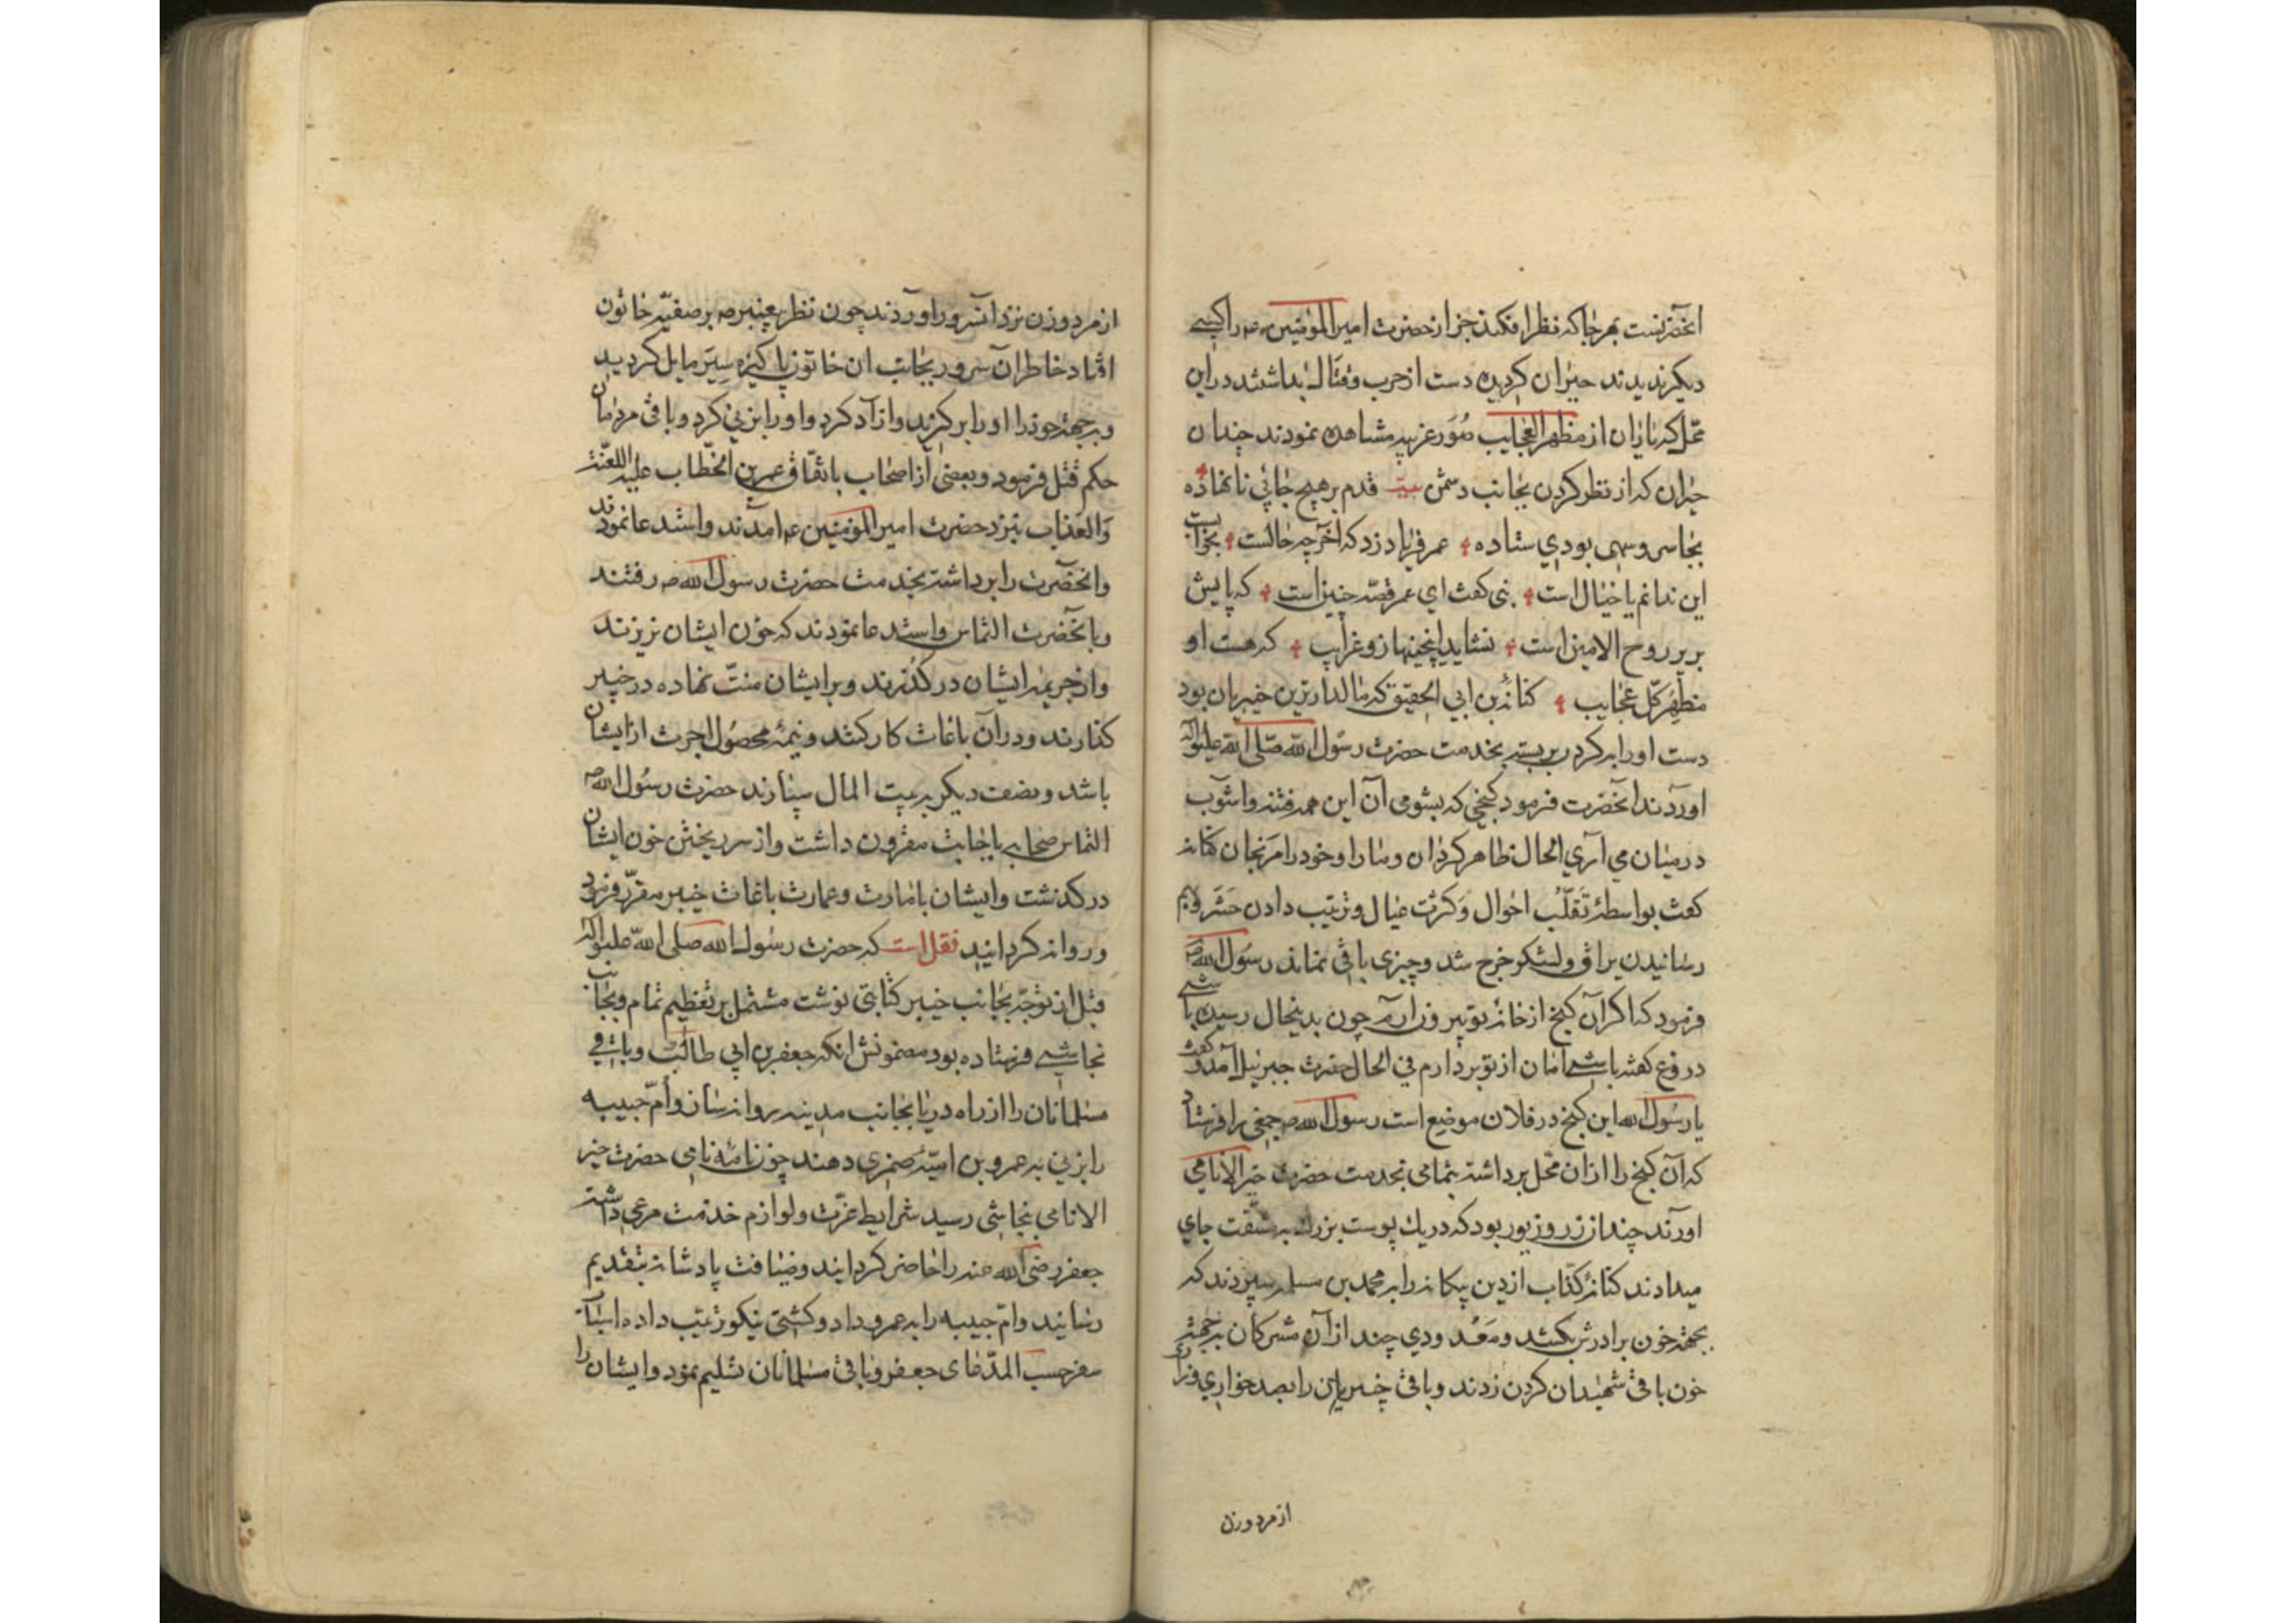 آنحضرتست بهر جا که نظر افکند جز از حضرت امیر المؤمنین عم را کسی
دیگر ندیدند حیران کردیده دست از حرب و قتال بداشتند در این
محل که یاران از مظهر العجایب صُوَر غریبه مشاهده نمودند چندان
حیران که از نظر کردن بجانب دشمن بیت قدم بر هیچ جائی نانهاده
بجا سر و سهی بودی ستاده عمر فریاد زد که آخر چه حالست بخوابست
این ندانم یا خیال است نبی کفت ای عمر قصّه چنین است که پایش
بر پر روح الامین است نشاید اینچنینها زو غرایب که هست او
مظهر کل عجایب کنانه بن ابی الحقیق که مالدارترین خیبریان بود
دست او را بکردن بربسته بخدمت حضرت رسُول الله صلی الله علیه و آله
اوردند آنحضرت فرمود کنجی که بشومی آن این همه فتنه و اشوب
در میان می آری الحال ظاهر کردان و ما را و خود را مرنجان کنانه
کفت بواسطۀ تَقَلّب احوال و کثرت عیال و ترتیب دادن حشر و بهم
رسانیدن یراق و لشکر خرج شد و چیزی باقی نماند رسُول الله ص
فرمود که اکر آن کنج از خانه تو بیرون آرم چون بدینحال رسیده باشی
دروغ کفته باشی امان از تو بردارم فی الحال حضرت جبرئیل آمد و کفت
یا رسُول الله این کنج در فلان موضع است رسول الله ص جمعی را فرستاد
که آن کنج را از ان محل برداشته بتمامی بخدمت حضرت خیر الانامی
اورند چندان زر و زیور بود که در یک پوست بزرک به مشقت جای
میدادند کنانۀ کذاب از دین بیکانه را به محمد بن مسلمه سپردند که
بجهة خون برادرش بکشد و مَعْد ودی چند از آن مشرکان بجهة
خون باقی شهیدان کردن زدند و باقی خیبریان را بصد خواری و زاری
از مرد و زن
از مرد و زن نزد آنسرور اوردند چون نظر پیغمبر ص بر صفیّه خاتون
افتاد خاطر آن سرور بجانب ان خاتون پاکیزه سِیَر مایل کردید
و بجهة خود او را بر کزید و ازاد کرد و او را بزنی کرد و باقی مردمان
حکم قتل فرمود و بعضی از اصحاب باتفاق عمر بن الخطاب علیه اللعنة
وَالعَذاب بنزد حضرت امیر المؤمنین عم امدند و استدعا نمودند
و انحضرت را برداشته بخدمت حضرت رسول الله ص رفتند
و بآنحضرت التماس و استدعا نمودند که خون ایشان نریزند
و از جریمۀ ایشان در کذرند و بر ایشان منّت نهاده در خیبر
کذارند و در آن باغات کار کنند و نیمۀ محصُول اجرت از ایشان
باشد و نصف دیکر به بیت المال سپارند حضرت رسُول الله ص
التماس صحابه باجابت مقرون داشت و از سر ریختن خون ایشان
در کذشت و ایشان بامارت و عمارت باغات خیبر مقرّر فرمود
و روانه کردانید نقل است که حضرت رسُول الله صلی الله علیه و آله
قبل از توجّه بجانب خیبر کتابتی نوشت مشتمل بر تعظیم تمام و بجانب
نجاشی فرستاده بود مضمونش انکه جعفر بن ابی طالب و باقی
مسلمانان را از راه دریا بجانب مدینه روانه سازد و اُمّ حبیبه
را بزنی به عمرو بن امیّۀ ضمری دهند چون نامۀ نامی حضرت خیر
الانامی بنجاشی رسید شرایط عزّت و لوازم خدمت مرعی داشته
جعفر رضی الله عنه را حاضر کردانید و ضیافت پادشانه بتقدیم
رسانید و امّ حبیبه را به عمرو داد و کشتی نیکو ترتیب داده اسباب
سفر حسب المدّعای جعفر و باقی مسلمانان تسلیم نمود و ایشان را